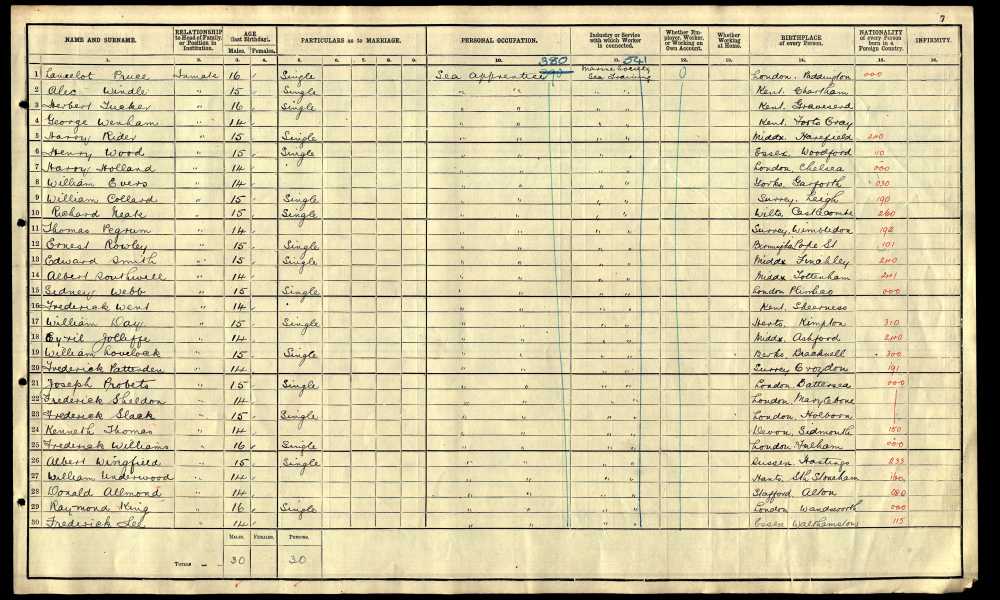 7
NAME AND SURNAME. RELATIONSHIP to Head of Family, or Position in Institution. AGE (last Birthday). Males. Females. PARTICULARS as to MARRIAGE. PERSONAL OCCUPATION. Industry or Service with which Worker is connected. Whether Employer, Worker, or Working on Own Account. Whether Working at Home. BIRTHPLACE of every Person. NATIONALITY of every Person born in a Foreign Country. INFIRMITY.
1. 2. 3. 4. 5. 6. 7. 8. 9. 10. 11. 12. 13. 14. 15. 16.
380 541
1 Lancelot Pruce Inmate 16 Single Sea Apprentice 390 Marine Society Sea Training 0 London. Paddington 000
2 Alec Windle " 15 Single " " " " Kent. Chartham
3 Herbert Tucker " 16 Single " " " " Kent. Gravesend
4 George Wenham " 14 " " " " Kent. Foots Cray
5 Harry Rider " 15 Single " " " " Middx. Harefield 240
6 Henry Wood " 15 Single " " " " Essex. Woodford 110
7 Harry Holland " 14 " " " " London Chelsea 000
8 William Evers " 14 " " " " Yorks. Garforth 030
9 William Collard " 15 Single " " " " Surrey. Leigh 190
10 Richard Neate " 15 Single " " " " Wilts. Castlecombe 260
11 Thomas Pegrum " 14 " " " " Surrey. Wimbledon 192
12 Ernest Rowley " 15 Single " " " " Birmingham Pope St 101
13 Edward Smith " 15 Single " " " " Middx Finchley 240
14 Albert Southwell " 14 " " " " Middx Tottenham 241
15 Sidney Webb " 15 Single " " " " London Pimlico 000
16 Frederick Went " 14 " " " " Kent. Sheerness
17 William Day " 15 Single " " " " Herts. Kimpton 310
18 Cyril Jolliffe " 14 " " " " Middx. Ashford 240
19 William Lovelock " 15 Single " " " " Berks. Bracknell 300
20 Frederick Patterden " 14 " " " " Surrey Croydon 191
21 Joseph Probets " 15 Single " " " " London Battersea 000
22 Frederick Sheldon " 14 " " " " London Marylebone
23 Frederick Slack " 15 Single " " " " London. Holborn
24 Kenneth Thomas " 14 " " " " Devon. Sidmouth 150
25 Frederick Williams " 16 Single " " " " London Fulham 000
26 Albert Wingfield " 15 Single " " " " Sussex. Hastings 233
27 William Underwood " 14 " " " " Hants. Sth Stoneham 160
28 Donald Allmond " 14 " " " " Stafford. Alton 080
29 Raymond King " 16 Single " " " " London Wandsworth 000
30 Frederick Lee " 14 " " " " Essex Walthamstow 115
MALES. FEMALES. PERSONS.
TOTALS 30 30